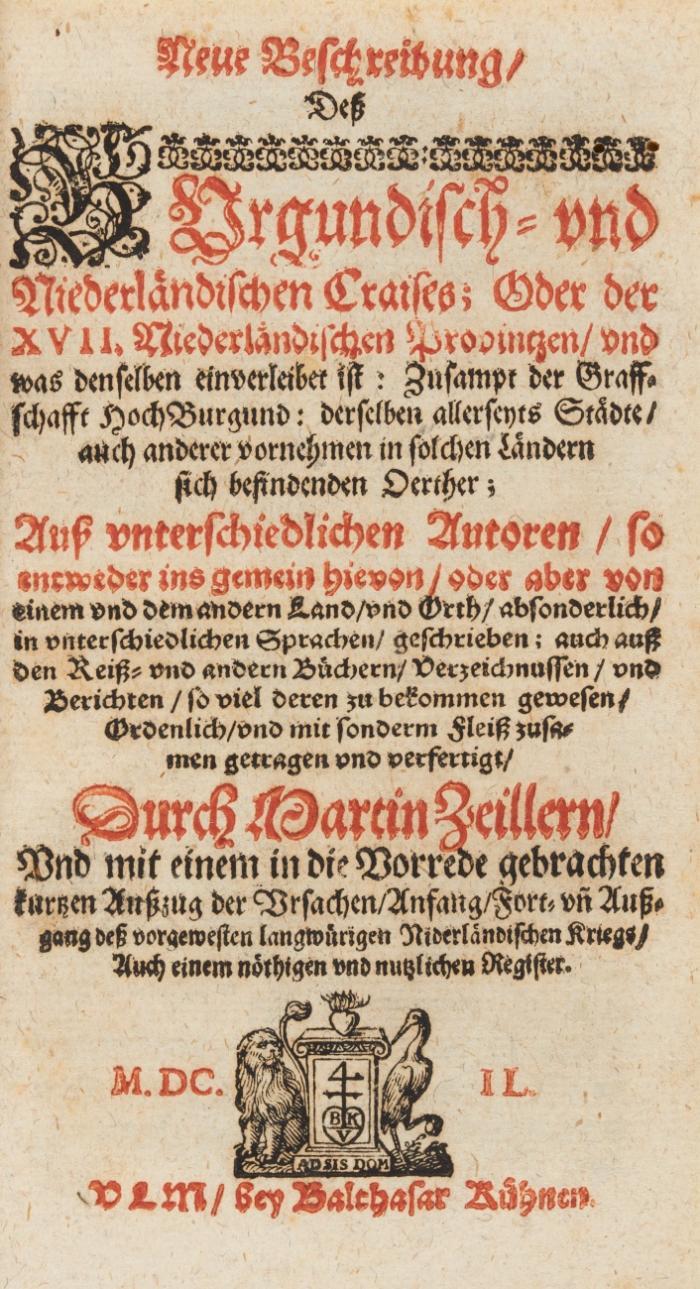 Neue Beschreibung/
Deß
BUrgundisch- vnd
Niederländischen Craises; Oder der
XVII. Niederländischen Provintzen/ vnd
was denselben einverleibet ist : Zusampt der Graff-
schafft HochBurgund: derselben allerseyts Städte/
auch anderer vornehmen in solchen Ländern
sich befindenden Oerther;
Auß vnterschiedlichen Autoren / so
entweder ins gemein hievon/ oder aber von
einem vnd dem andern Land/vnd Orth/ absonderlich/
in vnterschiedlichen Sprachen/ geschrieben; auch auß
den Reiß- vnd andern Büchern/ Verzeichnussen / vnd
Berichten / so viel deren zu bekommen gewesen/
Ordenlich/vnd mit sonderm Fleiß zusa-
men getragen vnd verfertigt/
Durch Martin Zeillern/
Vnd mit einem in die Vorrede gebrachten
kurtzen Außzug der Vrsachen/Anfang/Fort- vñ Auß-
gang deß vorgewesten langwürigen Niderländischen Kriegs/
Auch einem nöthigen vnd nutzlichen Register.
M. DC. IL.
B K
V
ADSIS DOM
VLM/ bey Balthasar Kühnen.